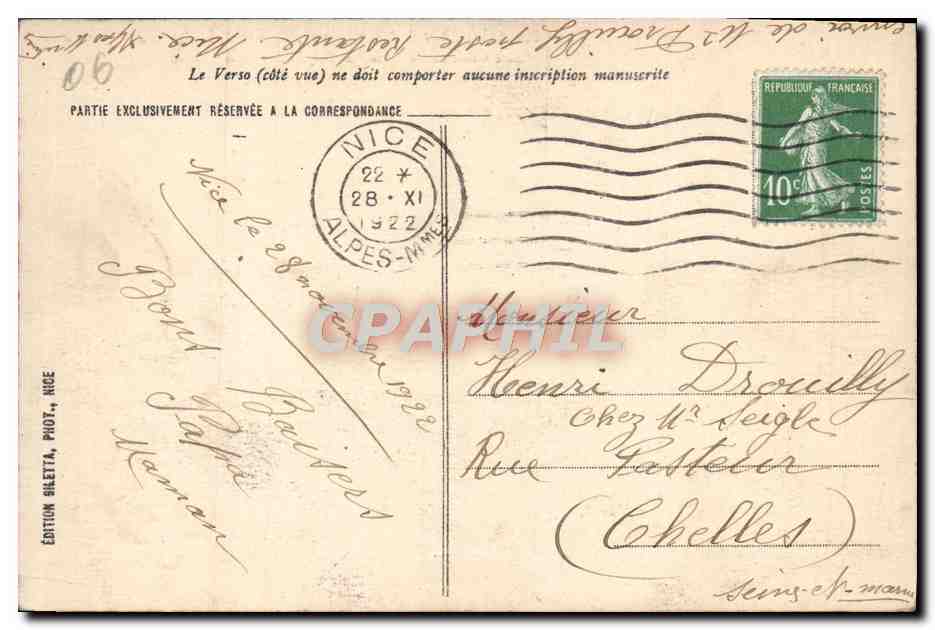 envoi de Mr Drouilly poste Restante Nice. Alpes
06
Le Verso (côté vue) ne doit comporter aucune inscription manuscrite
PARTIE EXCLUSIVEMENT RÉSERVÉE A LA CORRESPONDANCE
RÉPUBLIQUE FRANÇAISE
10c
POSTES
NICE
22 *
28 • XI
1922
ALPES-MMES
Nice le 28 novembre 1922
Bons Baisers
Papa
Maman
Monsieur
Henri Drouilly
Chez Mr Seigle
Rue Pasteur
(Chelles)
Seine-et-marne
ÉDITION GILETTA, PHOT., NICE
CPAPHIL